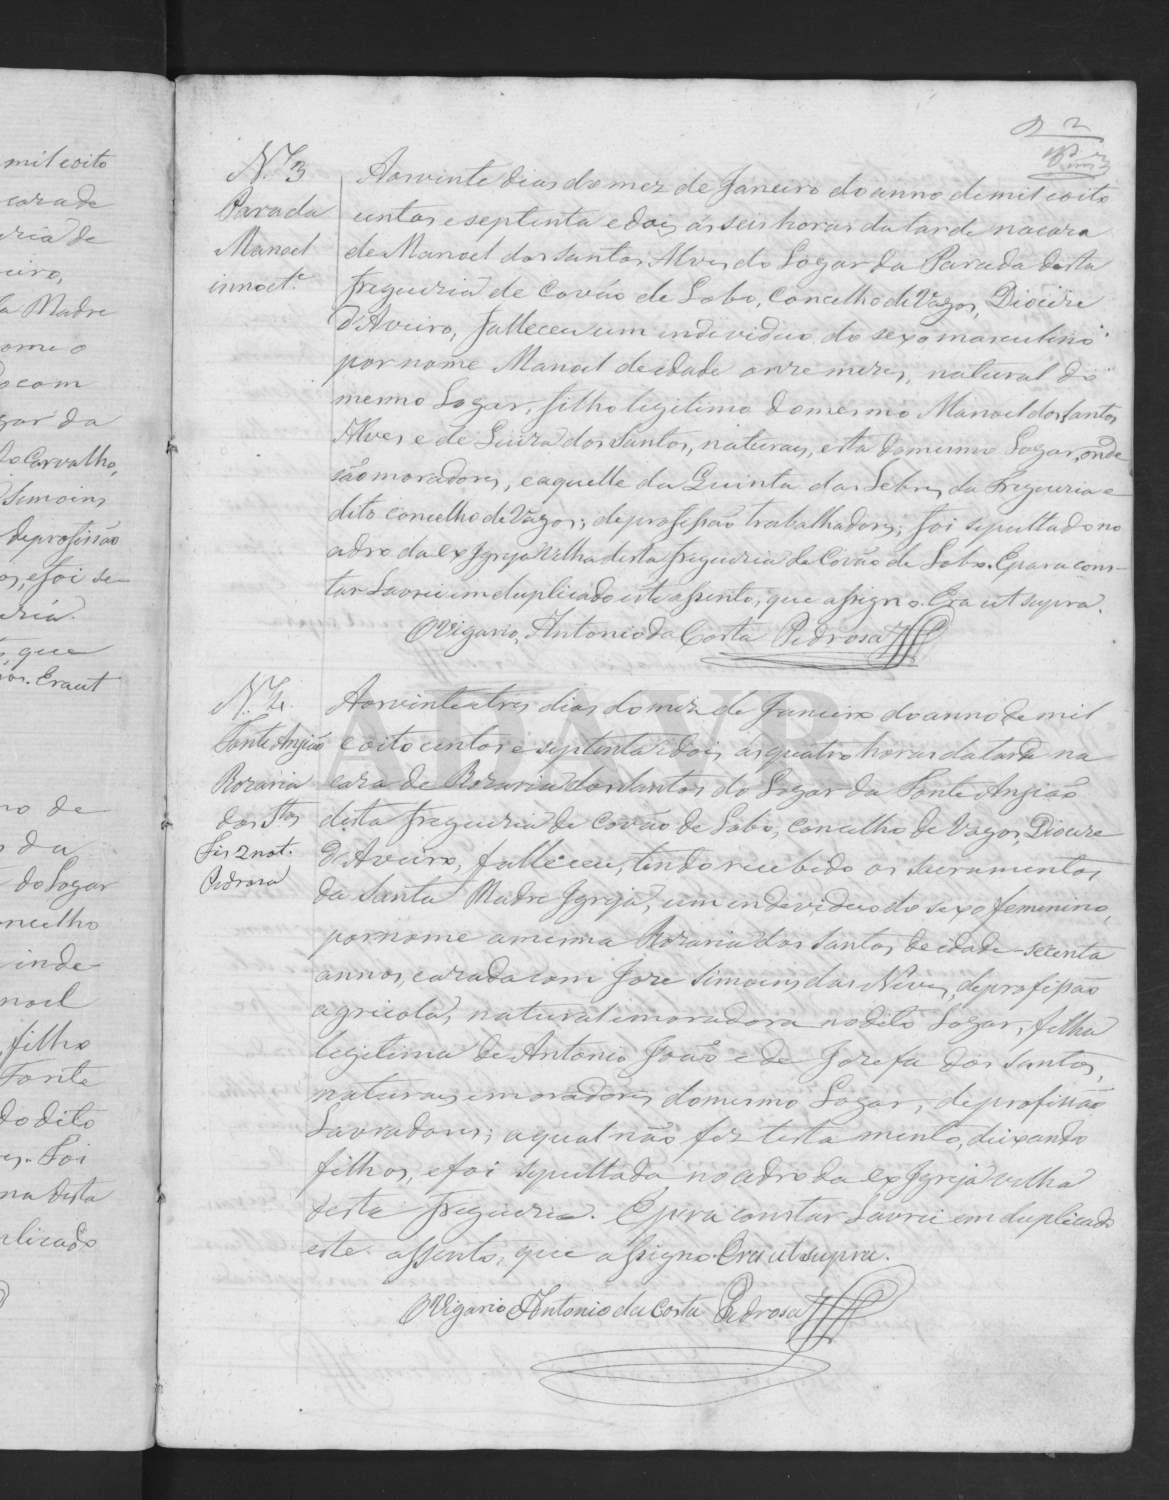 2
N.º 3
Parada
Manoel
innoct.e
Aos vinte dias do mez de Janeiro do anno de mil e oito
centos e septenta e dois, ás seis horas da tarde na caza
de Manoel dos Santos Alves do Logar da Parada desta
Freguezia de Covão de Lobo, Concelho de Vagos, Diocize
d'Aveiro, falleceu um individuo do sexo masculino
por nome Manoel de idade onze mezes, natural do
mesmo Logar, filho legitimo do mesmo Manoel dos Santos
Alves e de Luiza dos Santos, naturaes, esta do mesmo Logar, onde
são moradores, e aquelle da Quinta das Lebres da Freguezia e
dito concelho de Vagos; de profissão trabalhadores; foi sepultado no
adro da ex Igreja Velha desta freguezia de Covão de Lobo. E para cons-
tar Lavrei em duplicado este assento, que assigno. Era ut supra.
O Vigario, Antonio da Costa Pedrosa
N.º 4.
Fonte Angião
Rozaria
dos Stos
Fis 2 not.
Pedrosa
Aos vinte e tres dias do mez de Janeiro do anno de mil
e oito centos e septenta e dois, ás quatro horas da tarde na
caza de Rozaria dos Santos do Logar da Fonte Angião
desta freguezia de Covão de Lobo, concelho de Vagos, Diocize
d'Aveiro, falleceu, tendo recebido os sacramentos
da Santa Madre Igreja, um individuo do sexo femenino,
por nome a mesma Rozaria dos Santos, de idade secenta
annos, cazada com Joze Simoens das Neves, de profissão
agricola, natural e moradora no dito Logar, filha
legitima de Antonio João e de Jozefa dos Santos,
naturaes e moradores do mesmo Logar, de profissão
Lavradores; a qual não fez testamento, deixando
filhos, e foi sepultada no adro da ex Igreja velha
desta freguezia. E para constar Lavrei em duplicado
este assento, que assigno. Era ut supra.
O Vigario Antonio da Costa Pedrosa
ADAVR
mil e oito
caza de
Madre
com
gar da
Carvalho,
Simoins
de profissão
e foi se-
que
Era ut
no de
da
do Logar
oncelho
inde-
noel
filho
Fonte
do dito
Foi
na desta
plicado